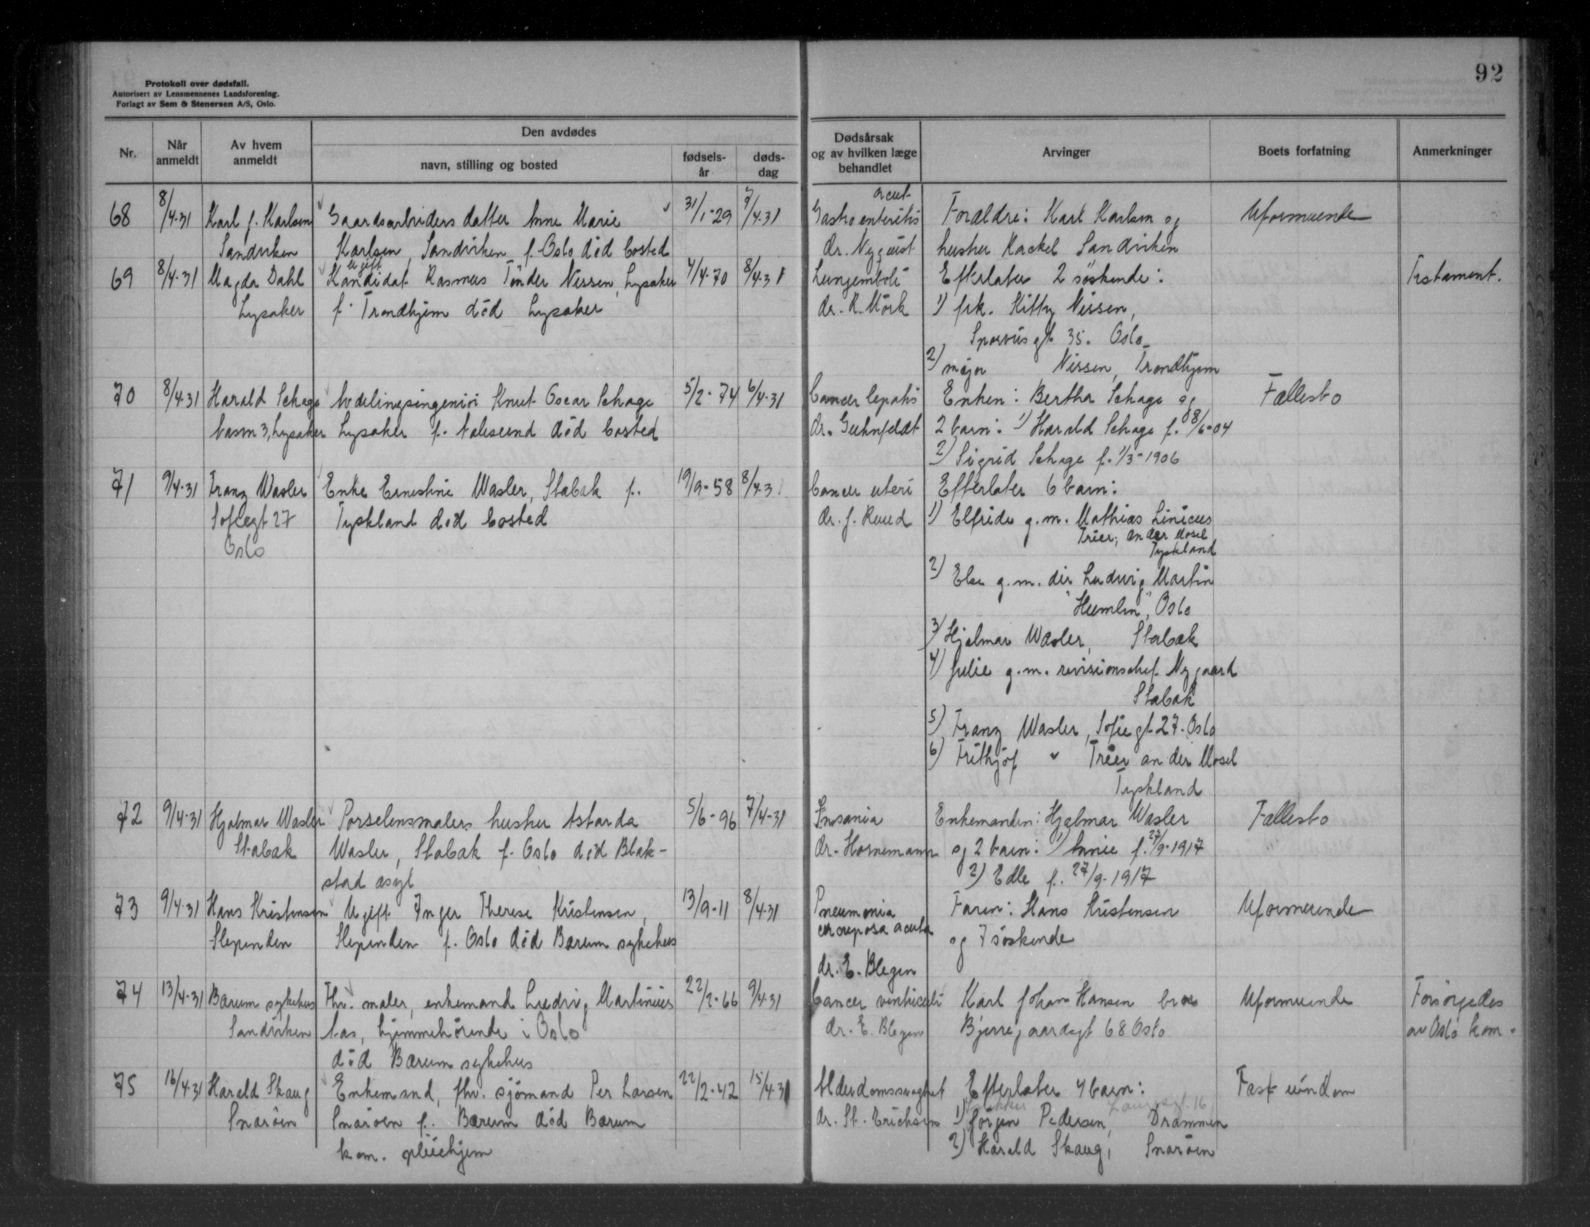 92
Protokoll over dødsfall.
Autorisert av Lensmennenes Landsforening.
Forlagt av Sem & Stenersen A/S, Oslo.
Nr.
Når anmeldt
Av hvem anmeldt
Den avdødes
navn, stilling og bosted
fødsels-år
døds-dag
Dødsårsak og av hvilken læge behandlet
Arvinger
Boets forfatning
Anmerkninger
68 8/4-31 Karl J. Karlsen Gaardsarbeiders datter Anne Marie 31/1-29 7/4.31 acut Gastroenteritis Foræeldre: Karl Karlsen og Uformuende
Sandviken Karlsen, Sandviken f. Oslo död bosted dr. Nyquist hustru Rackel Sandviken
69 8/4-31 Magda Dahl ugift Kandidat Rasmus Tönder Nissen, Lysaker 4/4-70 8/4-31 Lungemboli Efterlater 2 söskende: Testament.
Lysaker f. Trondhjem död Lysaker dr. R. Mörk 1) frk. Kitty Nissen,
gt. 35. Oslo
2) major Nissen, Trondhjem
70 8/4-31 Harald Schage Avdelingsingeniör Knut Oscar Schage 5/2-74 6/4-31 Cancer hepatis Enken: Bertha Schage og Fællesbo
3, Lysaker Lysaker f. Aalesund död bosted dr. 2 barn: 1) Harald Schage f. 8/6-04
2) Sigrid Schage f. 1/3-1906
71 9/4-31 Franz Wasler Enke Ernestine Wasler, Stabæk f. 19/9-58 8/4-31 Cancer uteri Efterlater 6 barn:
Sofiegt 27 Tyskland död bosted dr. J. Ruud 1) Elfride g.m. Mathias Linicus
Oslo Trier, an der Mosel
Tyskland
2) Else g.m. dir Ludvig Martin
"Humlen", Oslo
3) Hjalmar Wasler, Stabæk
4) Julie g.m. revisionschef Nygaard
Stabæk
5) Franz Wasler, Sofiegt 27. Oslo
6) Frithjof " Trier an der Mosel
Tyskland
72 9/4-31 Hjalmar Wasler Porselensmalers hustru Astarda 5/6-96 7/4-31 Insania Enkemanden: Hjalmar Wasler Fællesbo
Stabæk Wasler, Stabæk f. Oslo död Blak- dr. Hornemann og 2 barn: 1) Annie f. 27/9-1917
stad asyl 2) Edle f. 27/9-1917
73 9/4-31 Hans Kristensen Ugift Inger Therese Kristensen, 13/9-11 8/4-31 Pneumonia Faren: Hans Kristensen Uformuende
Slependen Slependen f. Oslo död Bærum sykehus crouposa acuta og 7 söskende
dr. E. Blegen
74 13/4-31 Bærum sykehus Fhv. maler, enkemand Ludvig Martinius 22/2-66 9/4-31 Cancer ventriculi Karl Johan Hansen Uformuende Forsörgedes
Sandviken Aas, hjemmehörende i Oslo dr. E. Blegen Bjerregaardsgt 68 Oslo av Oslo kom.
död Bærum sykehus
75 16/4-31 Harald Skaug Enkemand, fhv. sjömand Per Larsen 22/2-42 15/4-31 Alderdomssvaghet Efterlater 4 barn: Fast eiendom
Snaröen Snaröen f. Bærum död Bærum dr. St. Erichsen 1) Jörgen Pedersen, Drammen
kom. pleiehjem 2) Harald Skaug, Snaröen